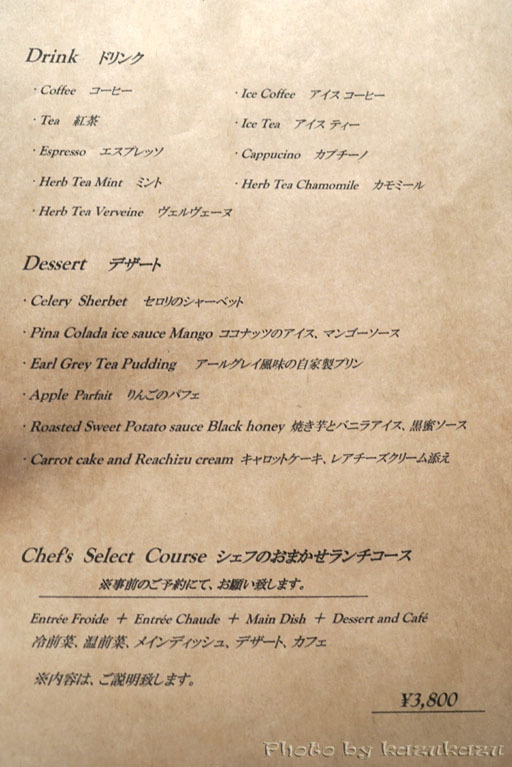 Drink ドリンク
・Coffee コーヒー
・Ice Coffee アイス コーヒー
・Tea 紅茶
・Ice Tea アイス ティー
・Espresso エスプレッソ
・Cappucino カプチーノ
・Herb Tea Mint ミント
・Herb Tea Chamomile カモミール
・Herb Tea Verveine ヴェルヴェーヌ
Dessert デザート
・Celery Sherbet セロリのシャーベット
・Pina Colada ice sauce Mango ココナッツのアイス、マンゴーソース
・Earl Grey Tea Pudding アールグレイ風味の自家製プリン
・Apple Parfait りんごのパフェ
・Roasted Sweet Potato sauce Black honey 焼き芋とバニラアイス、黒蜜ソース
・Carrot cake and Reachizu cream キャロットケーキ、レアチーズクリーム添え
Chef's Select Course シェフのおまかせランチコース
※事前のご予約にて、お願い致します。
Entrée Froide + Entrée Chaude + Main Dish + Dessert and Café
冷前菜、温前菜、メインディッシュ、デザート、カフェ
※内容は、ご説明致します。
¥3,800
Photo by kazukazu